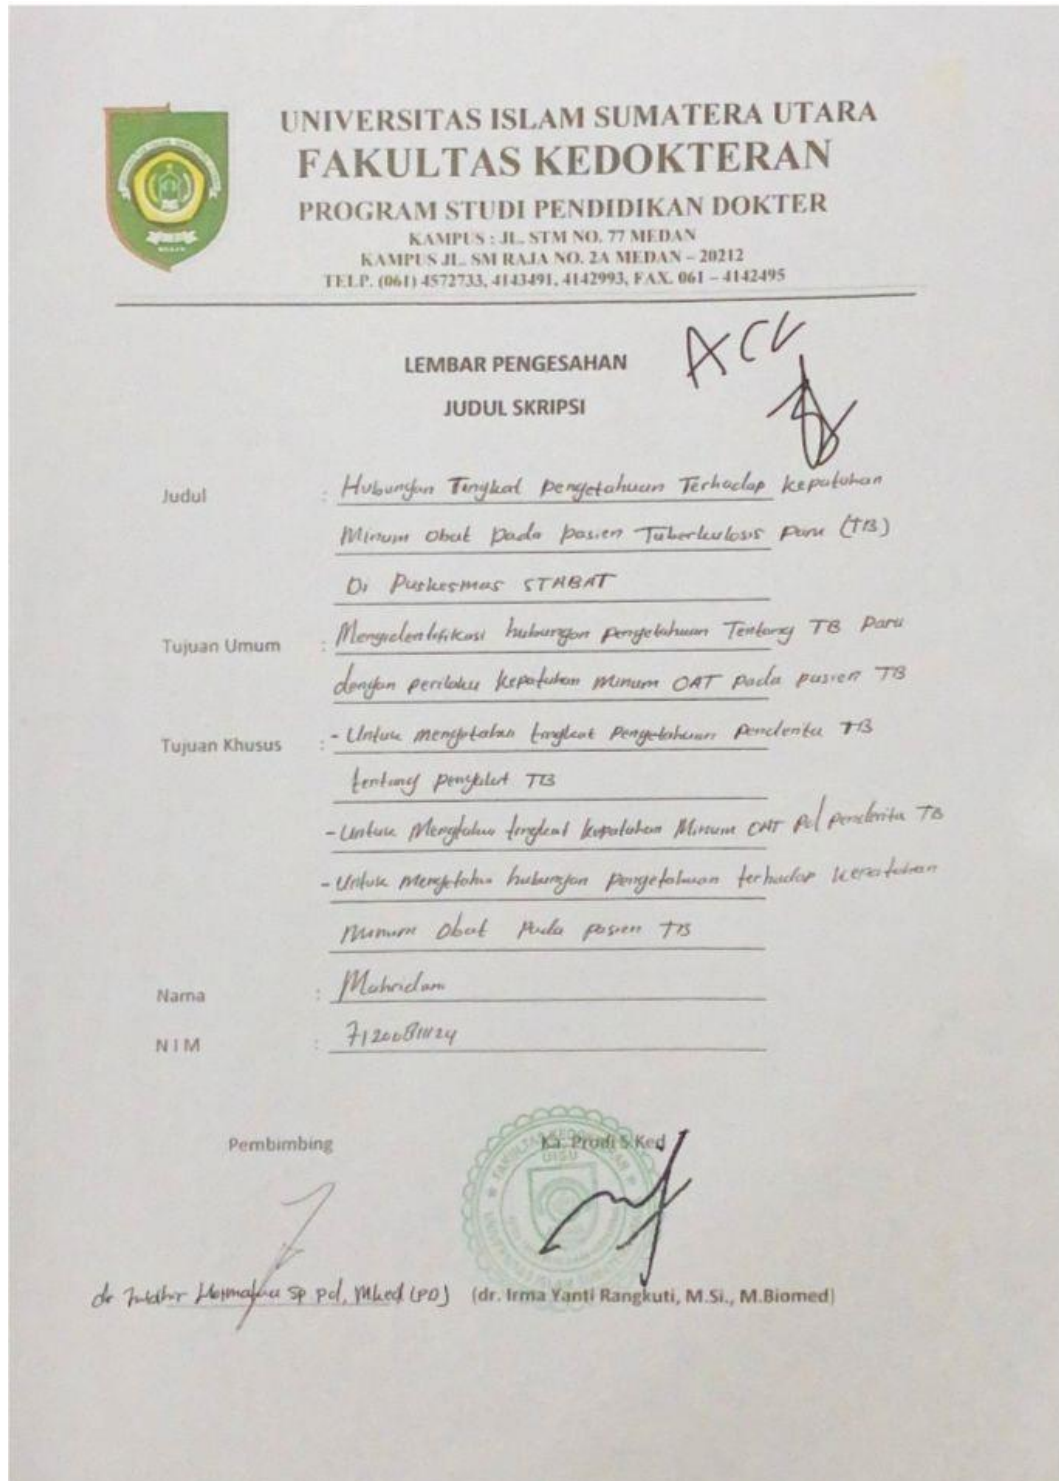 UNIVERSITAS ISLAM SUMATERA UTARA
FAKULTAS KEDOKTERAN
PROGRAM STUDI PENDIDIKAN DOKTER
KAMPUS : JL. STM NO. 77 MEDAN
KAMPUS JL. SM RAJA NO. 2A MEDAN – 20212
TELP. (061) 4572733, 4143491, 4142993, FAX. 061 – 4142495
ACC
LEMBAR PENGESAHAN
JUDUL SKRIPSI
Judul : Hubungan Tingkat pengetahuan Terhadap kepatuhan
Minum Obat pada pasien Tuberkulosis paru (TB)
Di Puskesmas STABAT
Tujuan Umum : Mengidentifikasi hubungan pengetahuan Tentang TB Paru
dengan perilaku kepatuhan minum OAT pada pasien TB
Tujuan Khusus : - Untuk mengetahui tingkat Pengetahuan penderita TB
tentang penyakit TB
- Untuk Mengetahui tingkat kepatuhan Minum OAT pd penderita TB
- Untuk mengetahui hubungan pengetahuan terhadap kepatuhan
minum Obat Pada pasien TB
Nama : Mahridam
NIM : 71200811124
Pembimbing
Ka. Prodi S.Ked
UISU
dr Sp Pd, Mked (PD) (dr. Irma Yanti Rangkuti, M.Si., M.Biomed)